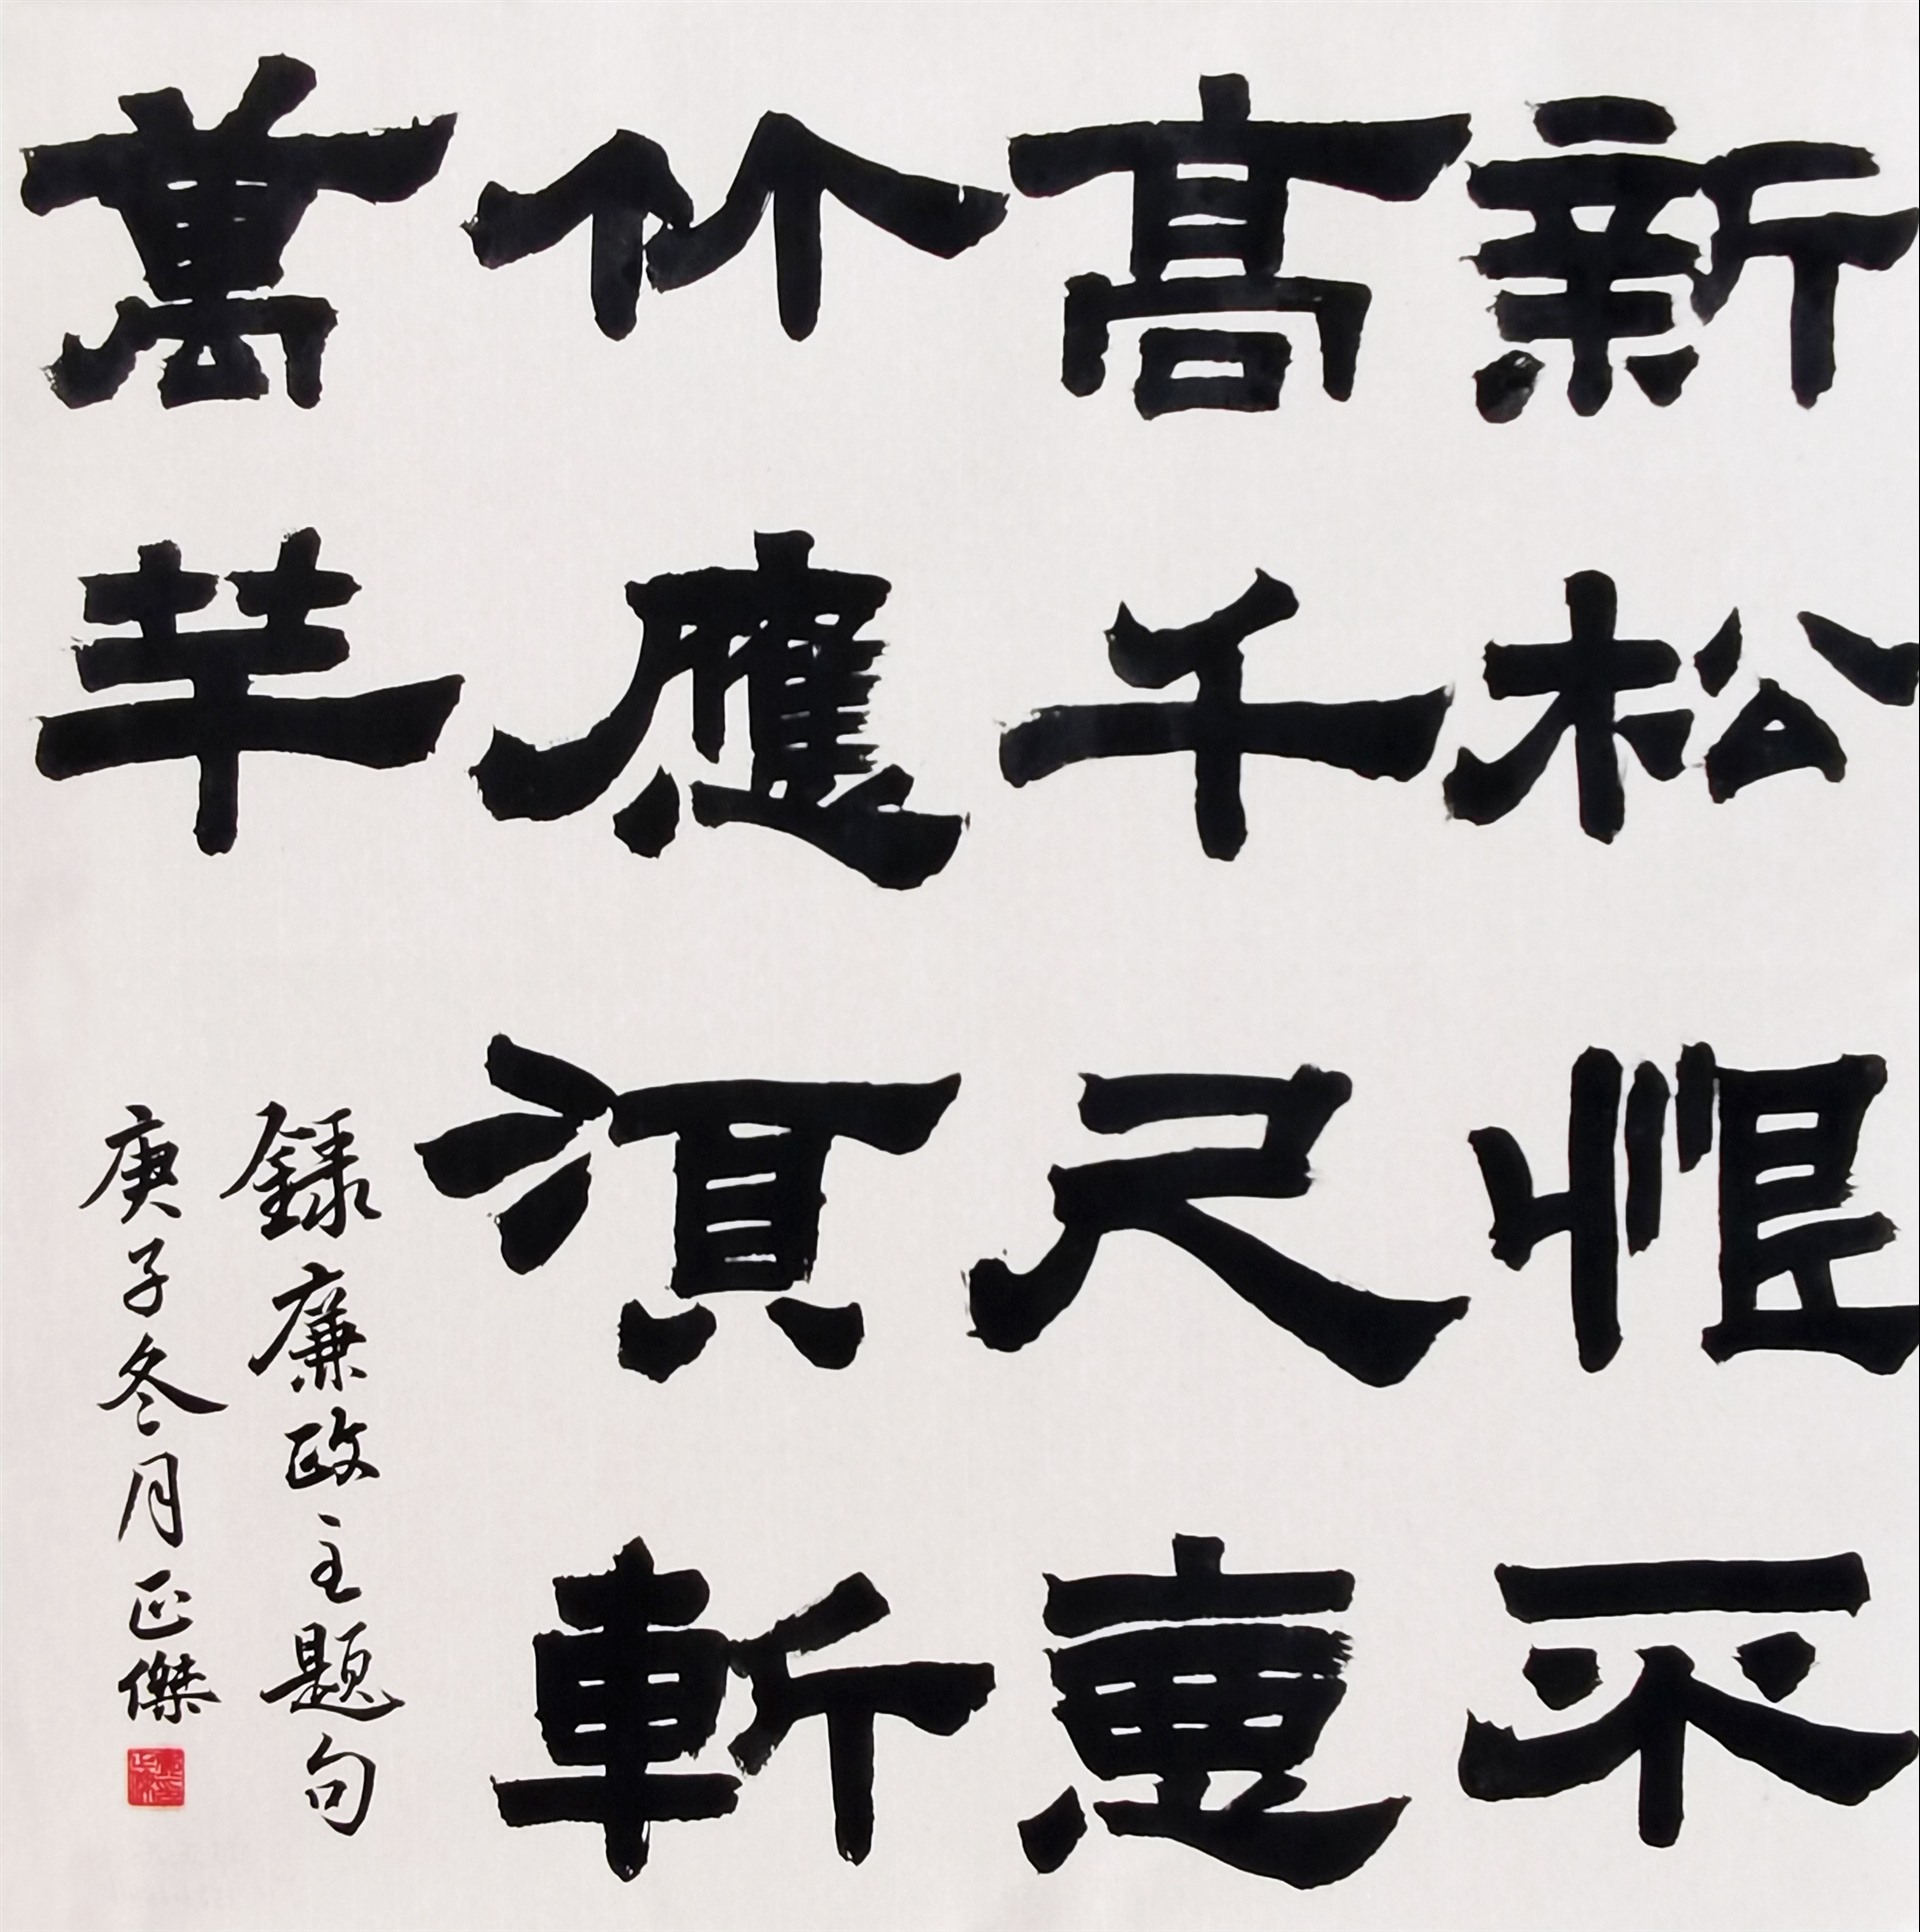 新松恨不
高千尺惡
竹應須斬
萬竿
錄廉政主題句
庚子冬月正傑